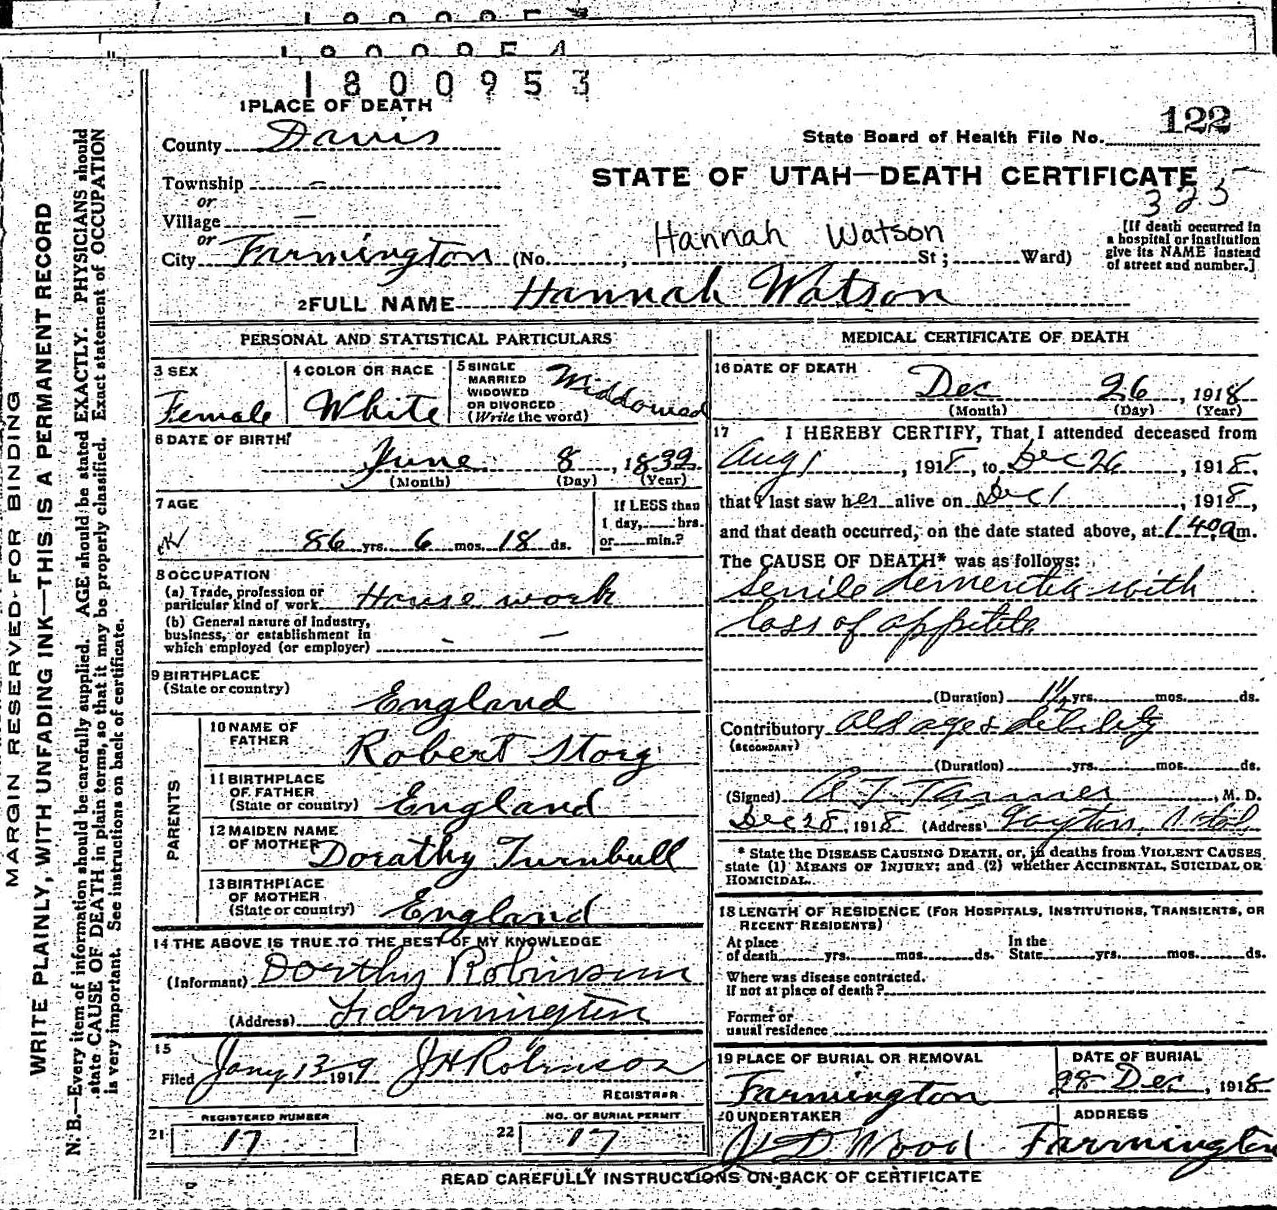 1800953
1 PLACE OF DEATH
County Davis
State Board of Health File No. 122
Township –
or
STATE OF UTAH—DEATH CERTIFICATE
325
Village –
or
City Farmington (No. , Hannah Watson St; Ward)
[If death occurred in
a hospital or institution
give its NAME instead
of street and number.]
2 FULL NAME Hannah Watson
PERSONAL AND STATISTICAL PARTICULARS
3 SEX
Female
4 COLOR OR RACE
White
5 SINGLE
MARRIED
WIDOWED
OR DIVORCED
(Write the word)
Widdowed
6 DATE OF BIRTH
June 8, 1832
(Month) (Day) (Year)
7 AGE
86 yrs. 6 mos. 18 ds.
If LESS than
1 day, hrs.
or min.?
8 OCCUPATION
(a) Trade, profession or
particular kind of work House work
(b) General nature of Industry,
business, or establishment in
which employed (or employer) – –
9 BIRTHPLACE
(State or country)
England
PARENTS
10 NAME OF
FATHER
Robert Story
11 BIRTHPLACE
OF FATHER
(State or country) England
12 MAIDEN NAME
OF MOTHER
Dorathy Turnbull
13 BIRTHPLACE
OF MOTHER
(State or country) England
14 THE ABOVE IS TRUE TO THE BEST OF MY KNOWLEDGE
(Informant) Dorthy Robinson
(Address) Farmington
15
Filed Jany 13 1919 J H Robinson
REGISTRAR
REGISTERED NUMBER
21 17
NO. OF BURIAL PERMIT
22 17
MEDICAL CERTIFICATE OF DEATH
16 DATE OF DEATH
Dec 26, 1918
(Month) (Day) (Year)
17 I HEREBY CERTIFY, That I attended deceased from
Aug 1, 1918, to Dec 26, 1918,
that I last saw her alive on Dec 1, 1918,
and that death occurred, on the date stated above, at 1.40 a m.
The CAUSE OF DEATH* was as follows:
Senile dementia with
loss of appitite
(Duration) 1½ yrs. mos. ds.
Contributory Old age & debility
(SECONDARY)
(Duration) yrs. mos. ds.
(Signed) A J Tanner, M. D.
Dec 28, 1918 (Address) Layton, Utah
* State the DISEASE CAUSING DEATH, or, in deaths from VIOLENT CAUSES
state (1) MEANS OF INJURY; and (2) whether ACCIDENTAL, SUICIDAL OR
HOMICIDAL.
18 LENGTH OF RESIDENCE (FOR HOSPITALS, INSTITUTIONS, TRANSIENTS, OR
RECENT RESIDENTS)
At place
of death yrs. mos. ds.
In the
State yrs. mos. ds.
Where was disease contracted.
If not at place of death?
Former or
usual residence
19 PLACE OF BURIAL OR REMOVAL
Farmington
DATE OF BURIAL
28 Dec, 1918
20 UNDERTAKER
Wood
ADDRESS
Farmington
READ CAREFULLY INSTRUCTIONS ON BACK OF CERTIFICATE
MARGIN RESERVED FOR BINDING
WRITE PLAINLY, WITH UNFADING INK—THIS IS A PERMANENT RECORD
N. B.—Every item of information should be carefully supplied. AGE should be stated EXACTLY. PHYSICIANS should
state CAUSE OF DEATH in plain terms, so that it may be properly classified. Exact statement of OCCUPATION
is very important. See instructions on back of certificate.